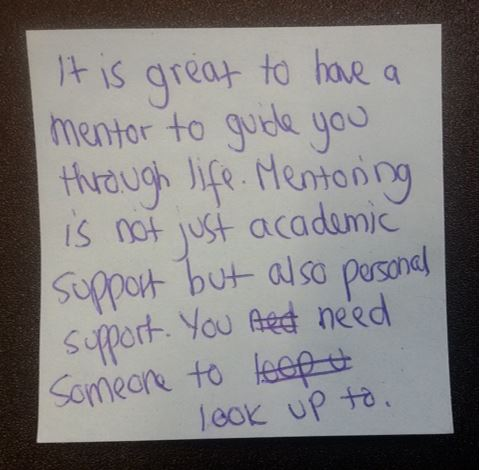 It is great to have a
mentor to guide you
through life. Mentoring
is not just academic
support but also personal
support. You ned need
someone to loop u
look up to.